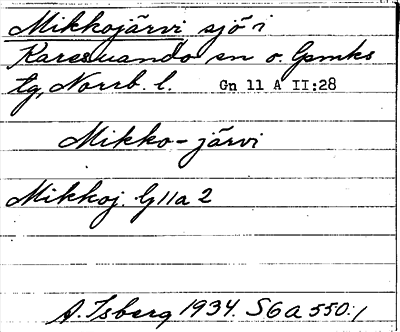 Mikkojärvi sjö i
Karesuando sn o. Gpmks
tg, Norrb. l. Gn 11 A II:28
Mikko-järvi
Mikkoj. G11a 2
A. Isberg 1934. S6a 550:1